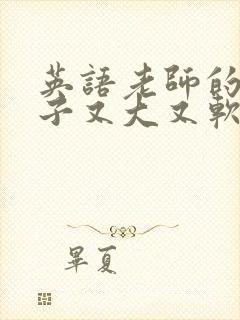 英語老師的
子又大又軟
畢夏